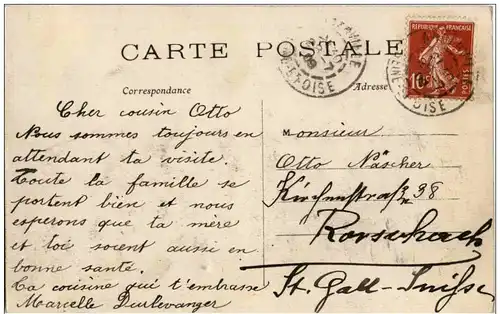 CARTE POSTALE
Correspondance
Cher cousin Otto
Nous sommes toujours en
attendant ta visite.
Toute la famille se
portent bien et nous
esperons que ta mère
et toi soient aussi en
bonne santé.
Ta cousine qui t'embrasse
Marcelle Durlevanger
Adresse
Monsieur
Otto Näscher
Kirchenstraße 38
Rorschach
St. Gall-Suisse
REPUBLIQUE FRANÇAISE
10
POSTES
ET-OISE
OISE